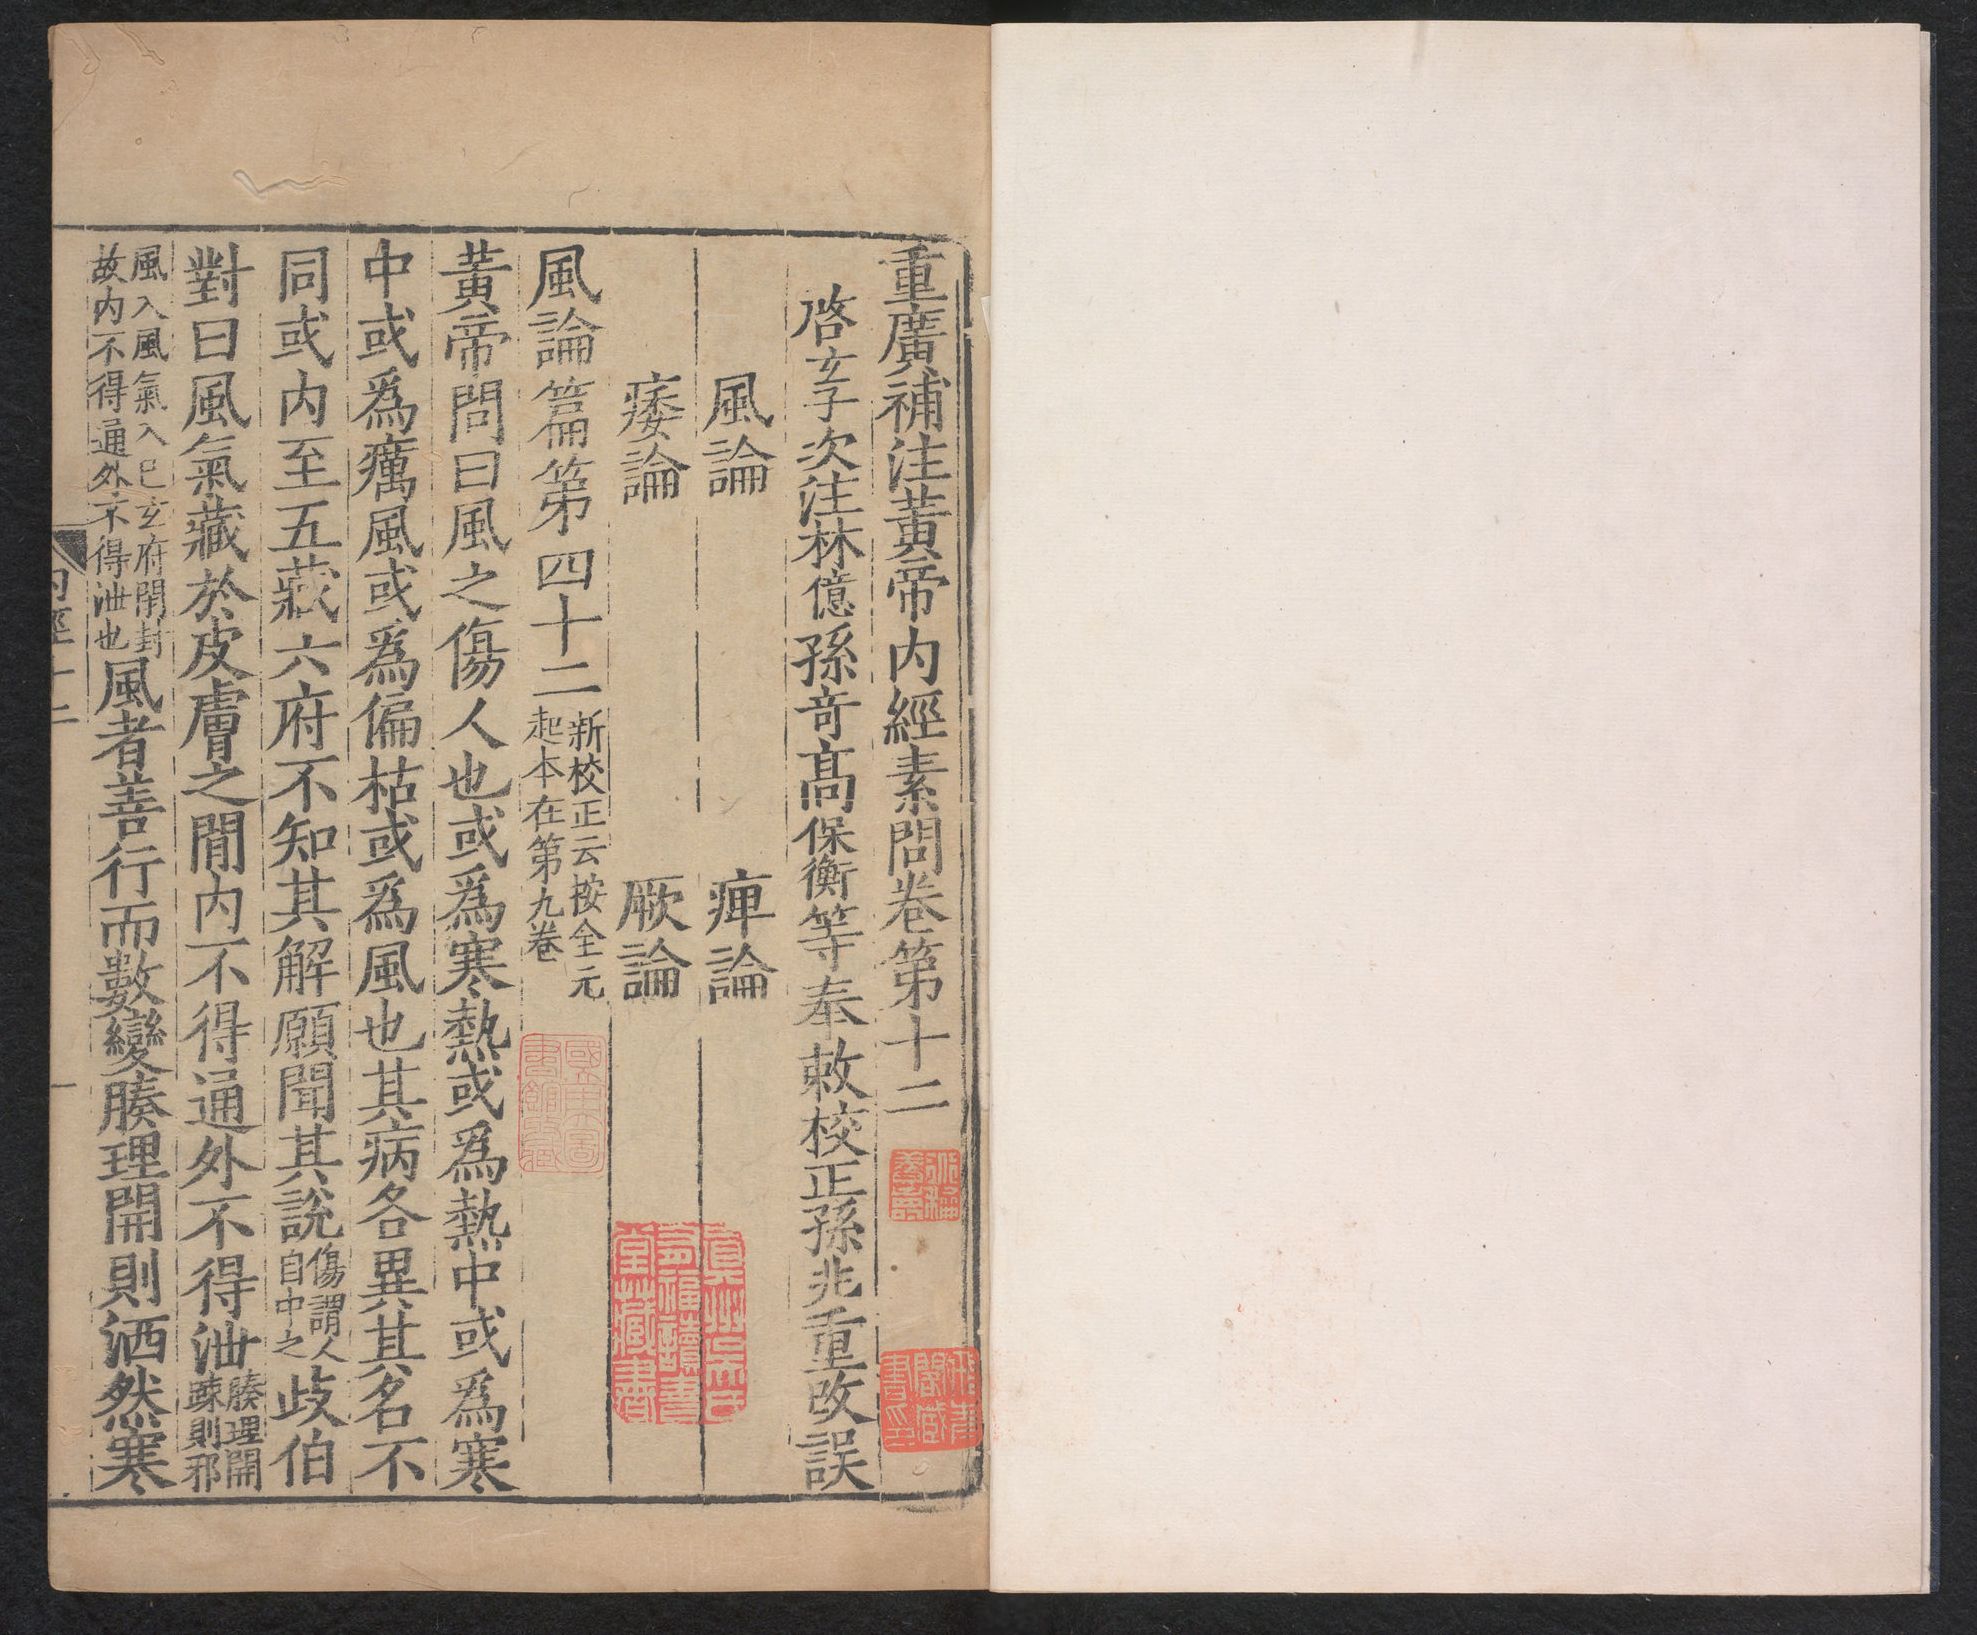 重廣補注黃帝內經素問卷第十二
啓玄子次注林億孫竒高保衡等奉敕校正孫兆重改誤
風論 痺論
痿論 厥論
風論篇第四十二 新校正云按全元起本在第九卷
黃帝問曰風之傷人也或爲寒熱或爲熱中或爲寒
中或爲癘風或爲偏枯或爲風也其病各異其名不
同或內至五藏六府不知其解願聞其說 傷謂人自中之 歧伯
對曰風氣藏於皮膚之閒內不得通外不得泄 腠理開踈則邪
風入風氣入已玄府閉封故內不得通外不得泄也 風者善行而數變腠理開則洒然寒
內經十二
一
國立北平圖書館收藏
真州吳氏有福讀書堂藏書
飛青閣藏書印